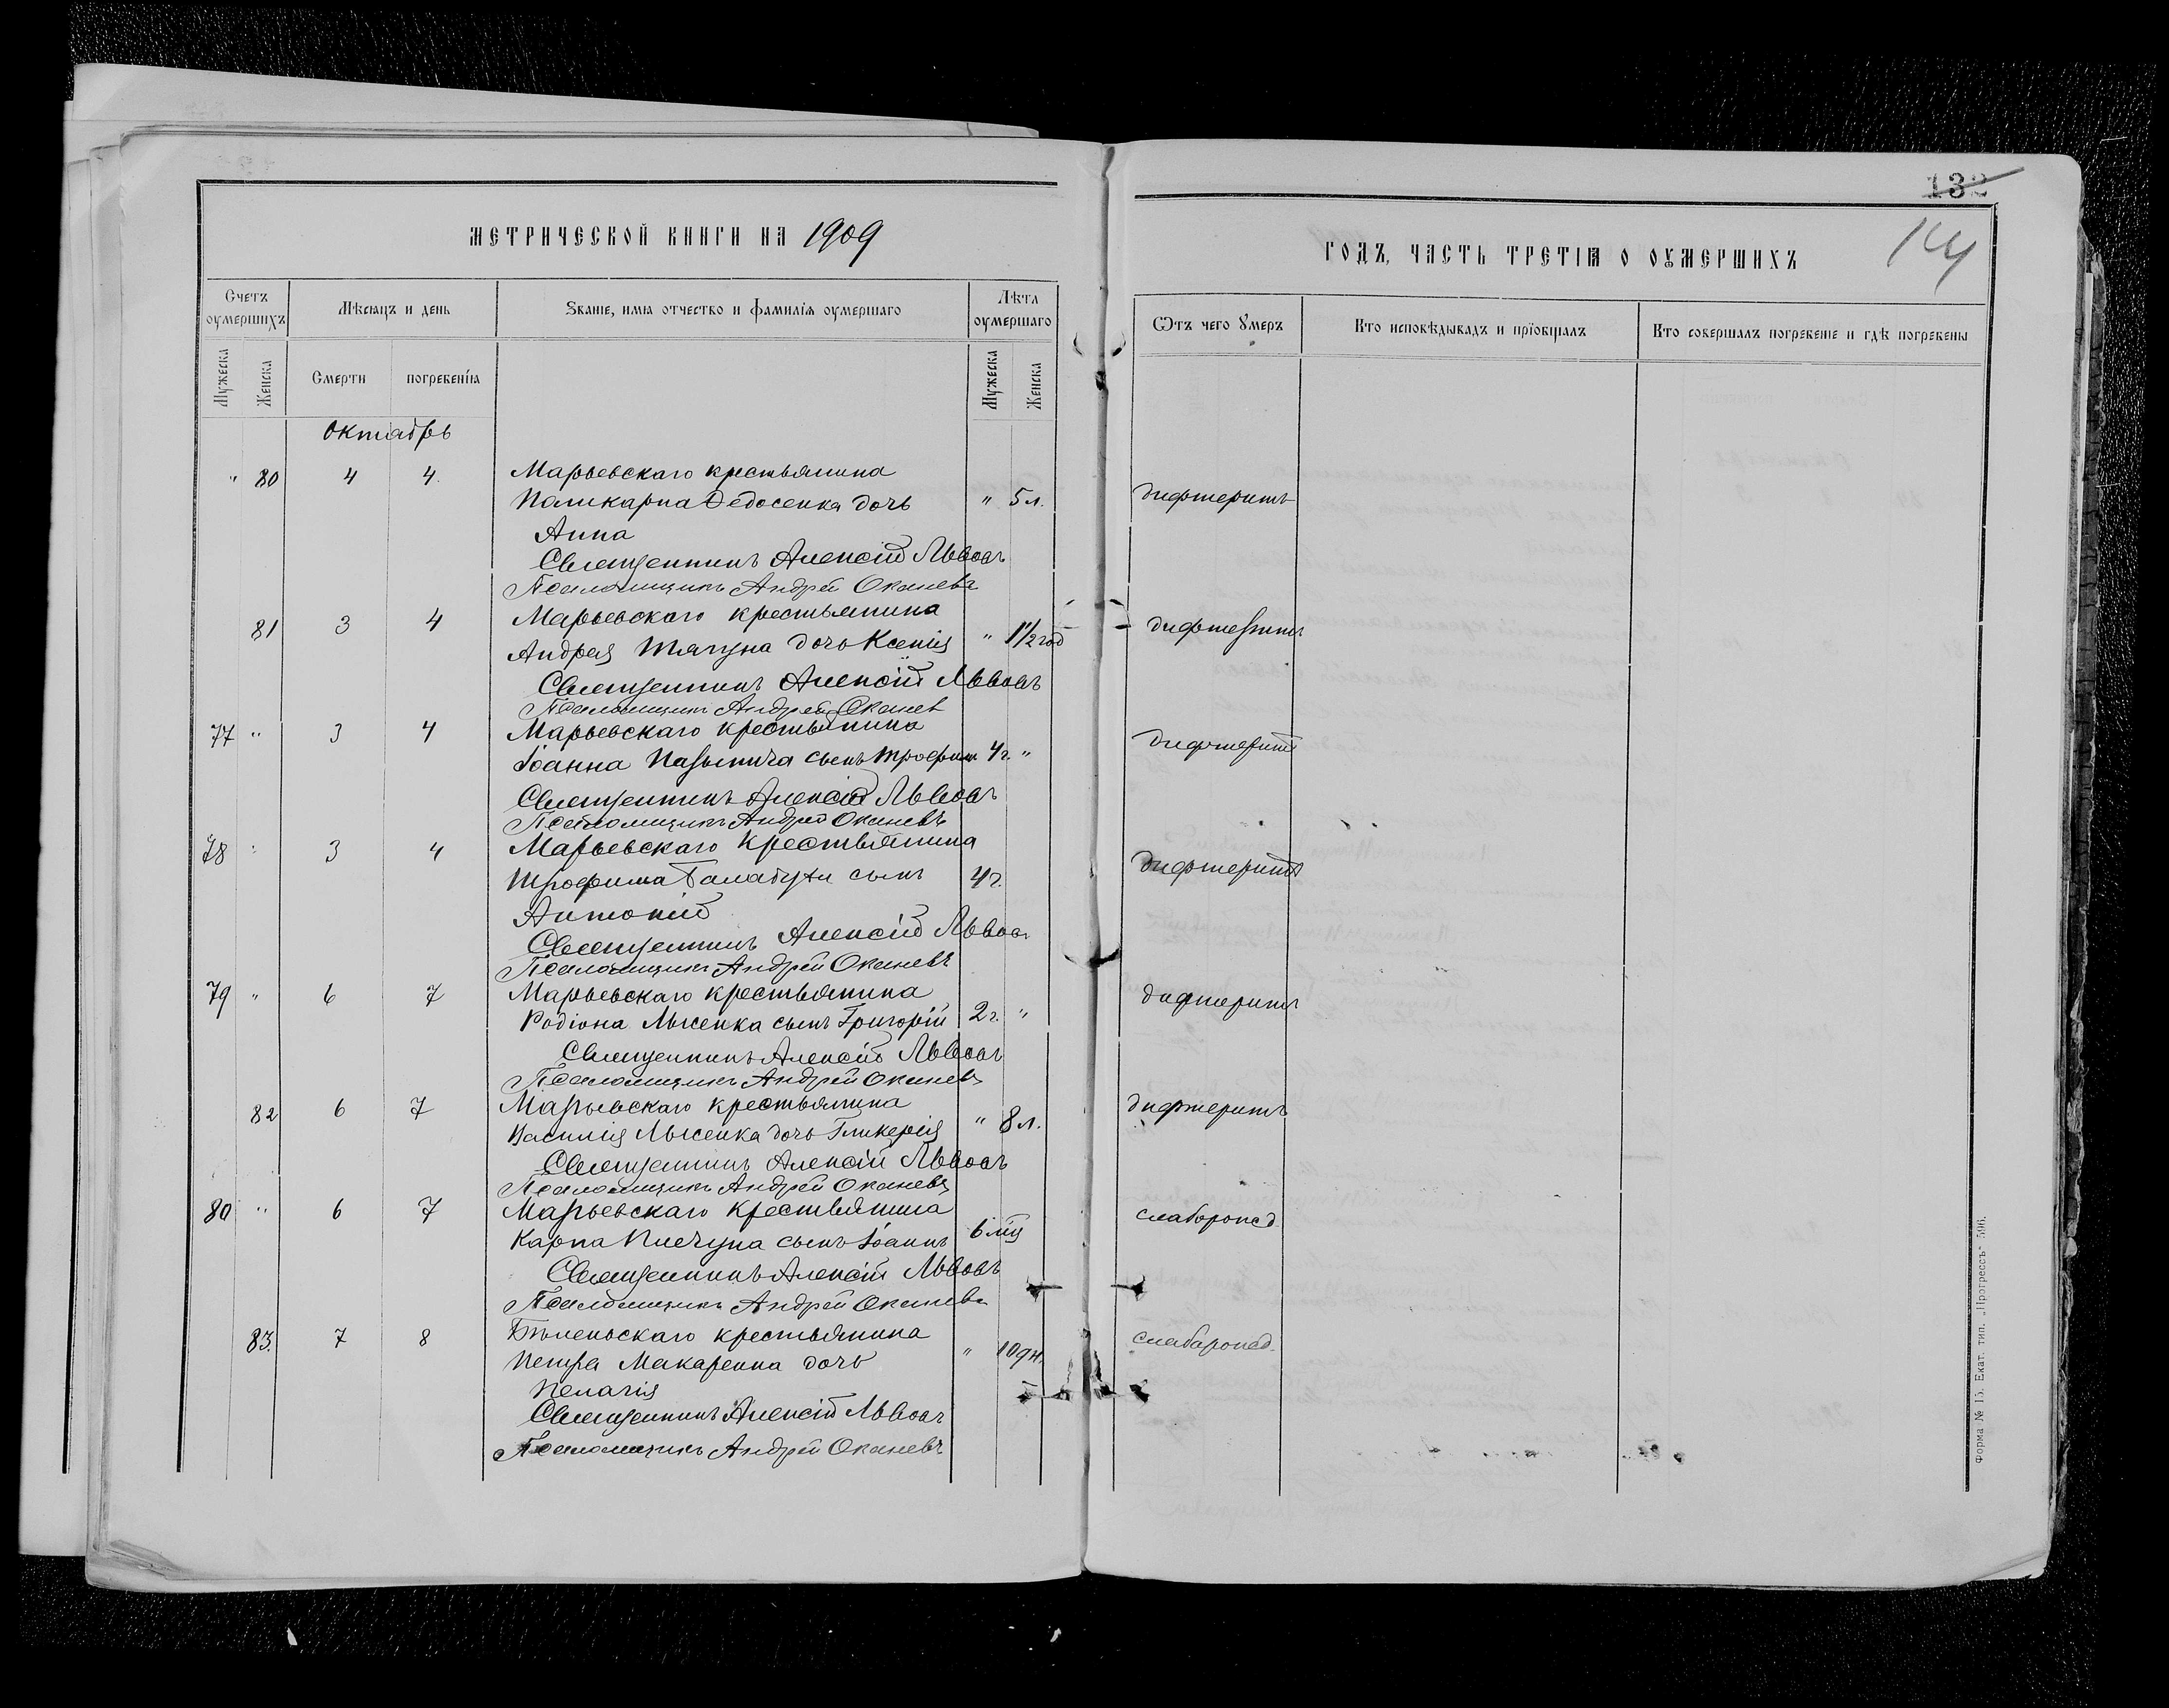 132
МЕТРИЧЕСКОЙ КНИГИ НА 1909
ГОДЪ, ЧАСТЬ ТРЕТІѦ О ОУМЕРШИХЪ
Счетъ оумершихъ
Мѣсяцъ и день
Званіе, имя отчество и фамилія оумершаго
Лѣта оумершаго
Ѿтъ чего Умеръ
Кто исповѣдывалъ и пріобщалъ
Кто совершалъ погребеніе и гдѣ погребены
Мужеска
Женска
Смерти
погребенія
Мужеска
Женска
Октябрь
" 80 4 4 Марьевскаго крестьянина
Поликарпа Федосенка дочь " 5 л. дифтеритъ
Анна
Священникъ Алексій Львовъ
Псаломщикъ Андрей Оканевъ
81 3 4 Марьевскаго крестьянина
Андрея Тягуна дочь Ксенія " 1 1/2 год дифтеритъ
Священникъ Алексій Львовъ
Псаломщикъ Андрей Оканев
77 " 3 4 Марьевскаго крестьянина
Іоанна сынъ Трофим 4 г. " дифтеритъ
Священникъ Алексій Львовъ
Псаломщикъ Андрей Оканевъ
78 " 3 4 Марьевскаго крестьянина
Трофима сынъ 4 г. дифтеритъ
Антоній
Священникъ Алексій Львовъ
Псаломщикъ Андрей Оканевъ
79 " 6 7 Марьевскаго крестьянина
Родіона Лысенка сынъ Григорій 2 г. " дифтеритъ
Священникъ Алексій Львовъ
Псаломщикъ Андрей Оканевъ
82 6 7 Марьевскаго крестьянина
Василія Лысенка дочь Гликерія " 8 л. дифтеритъ
Священникъ Алексій Львовъ
Псаломщикъ Андрей Оканевъ
80 " 6 7 Марьевскаго крестьянина
Карпа сынъ Іоаннъ 6 м слаборожд
Священникъ Алексій Львовъ
Псаломщикъ Андрей Оканевъ
83. 7 8 крестьянина
Петра Макаренка дочь " 10 дн. слаборожд
Пелагія
Священникъ Алексій Львовъ
Псаломщикъ Андрей Оканевъ
Форма № 15. Екат. тип. „Прогрессъ" 596.